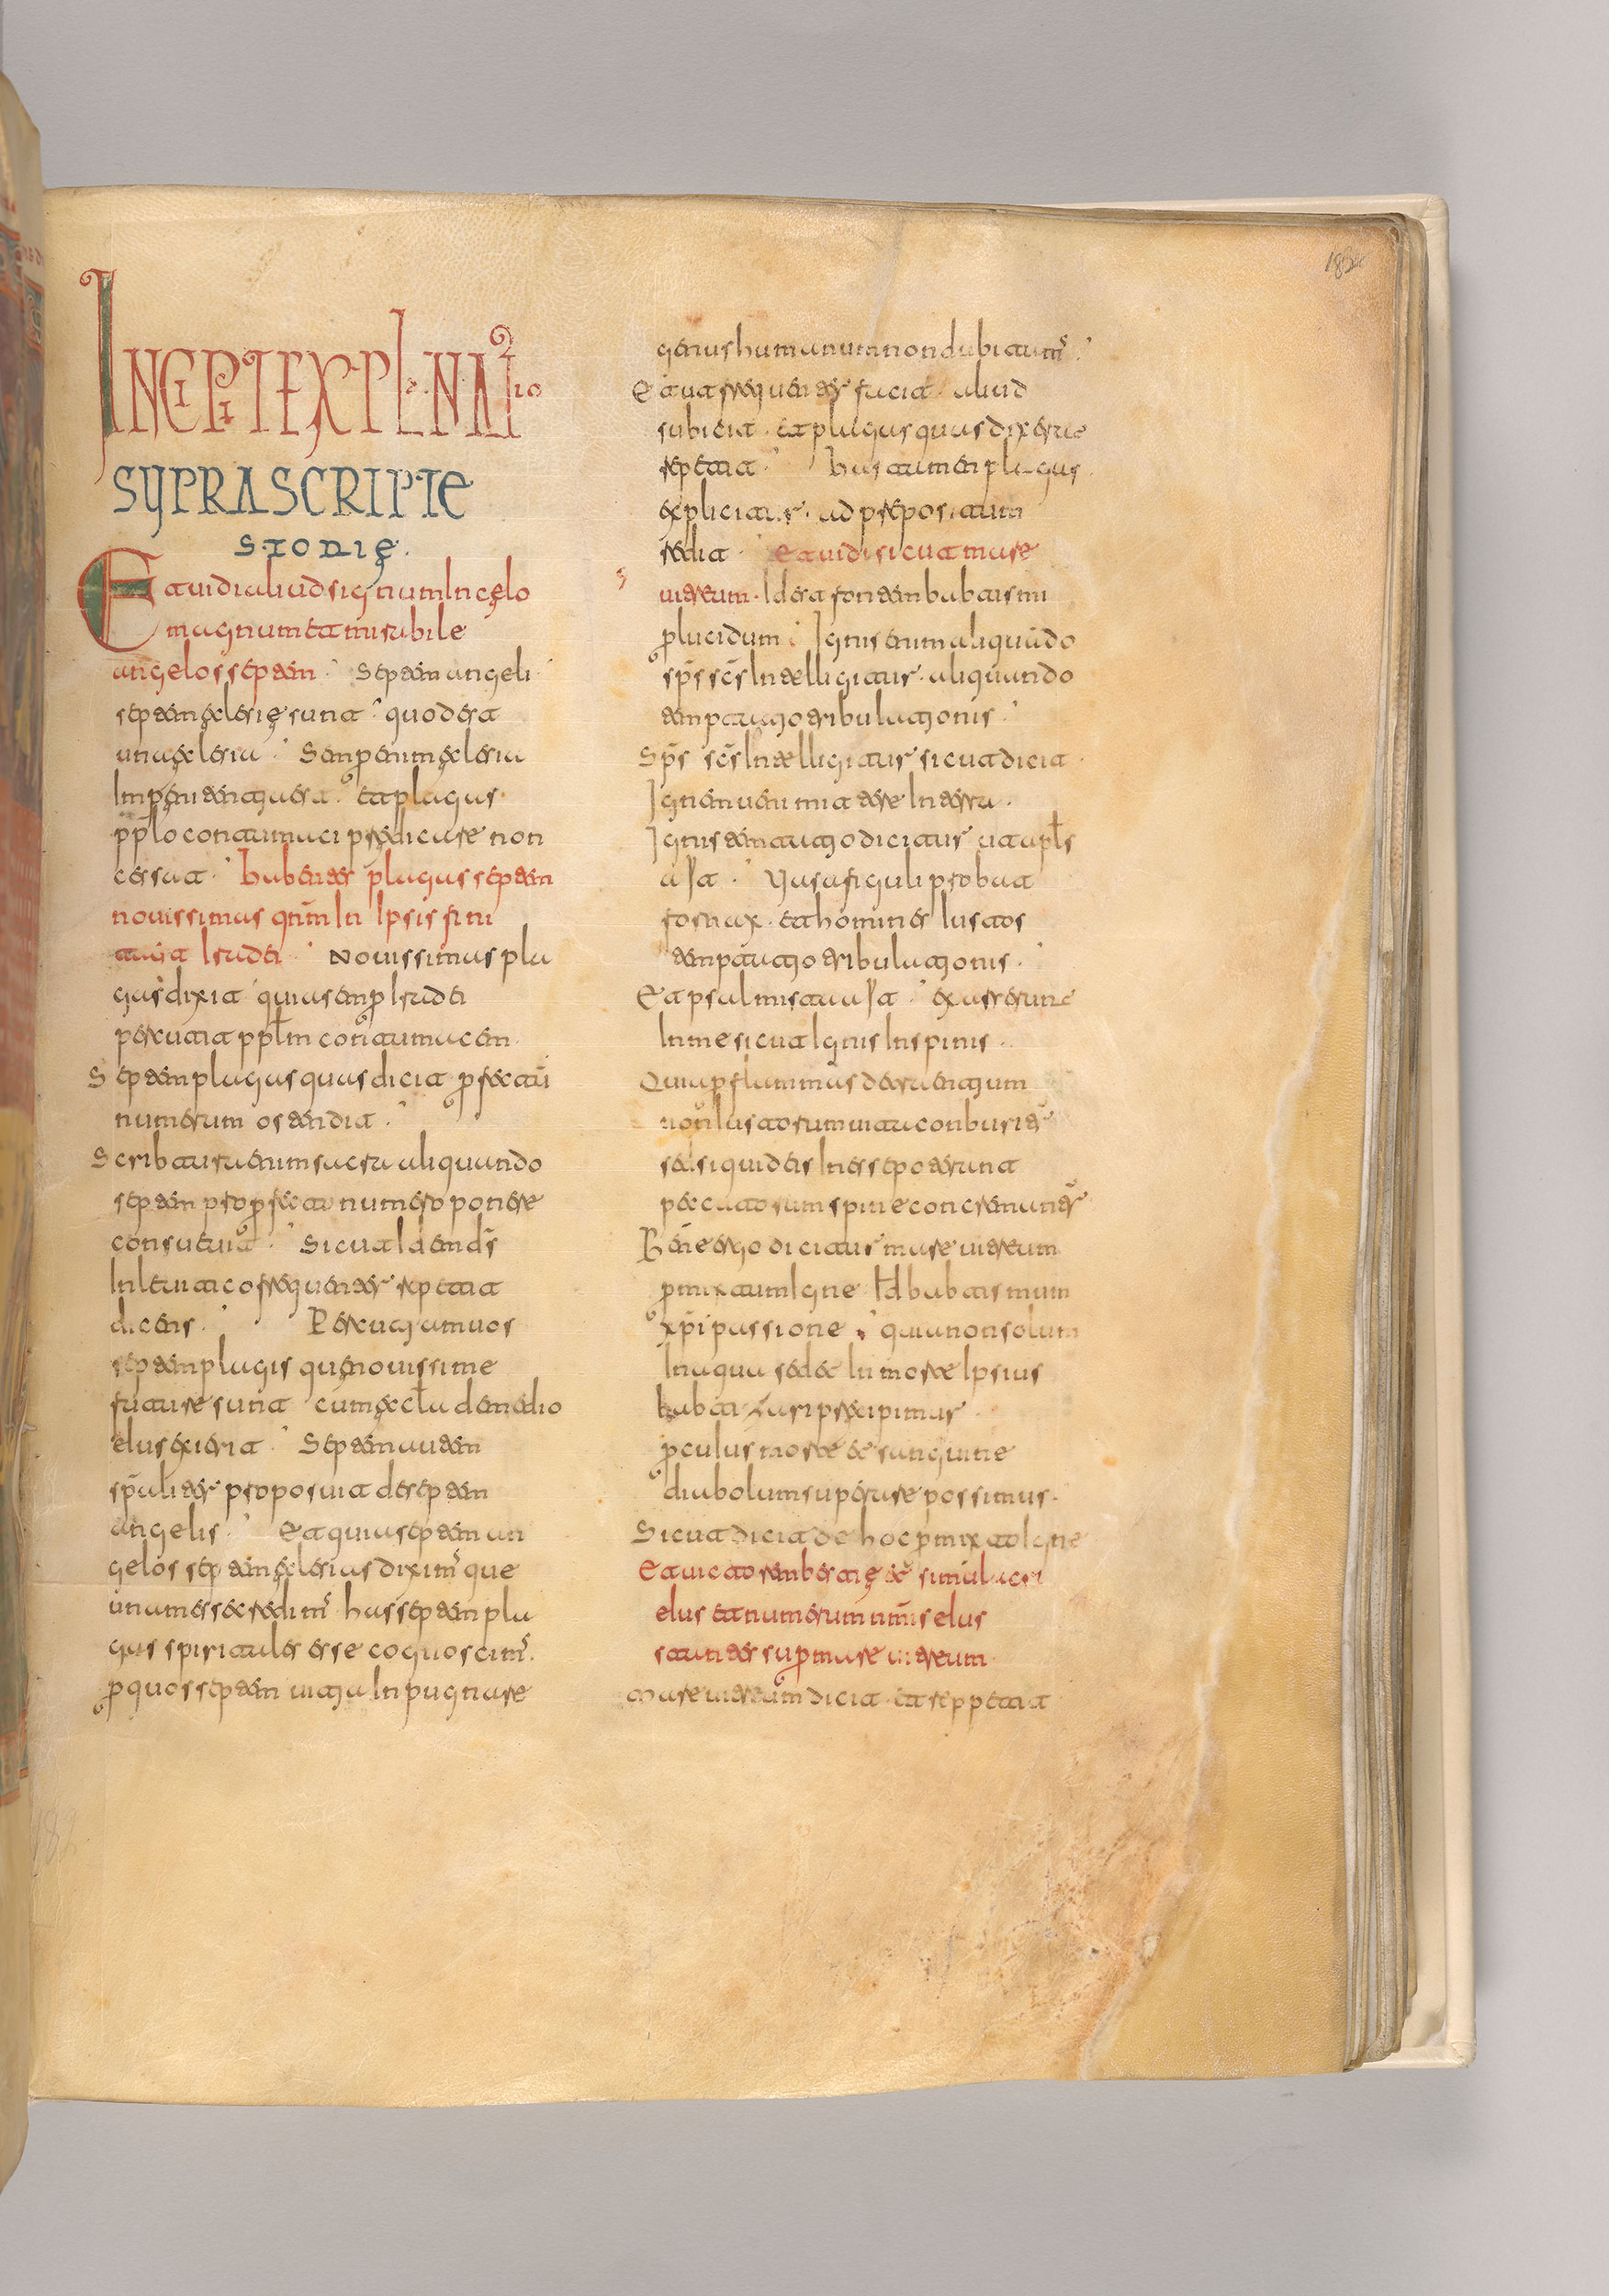 INCIPIT EXPLANATIO
SUPRASCRIPTE
STORIĘ.
Et uidi aliud signum In cęlo
magnum et mirabile
angelos septem. Septem angeli
septem ęclesię sunt. quod est
una ęclesia. Semper enim ęclesia
In penitentia est. et plagas
pplo contumaci predicare non
cessat. habentes plagas septem
nouissimas qnm In Ipsis fini
ta est Ira dei. Nouissimas pla
gas dixit quia semper Ira dei
percutit pplm contumacem.
Septem plagas quas dicit perfectū
numerum ostendit.
Scribtura enim sacra aliquando
septem pro perfecto numero ponere
consueuit. Sicut Idem ds̄
In leuitico frequenter repetit
dicens. Percutiam uos
septem plagis quę nouissime
future sunt cum ęcla de medio
eius exierit. Septem autem
spāliter proposuit de septem
angelis. Et quia septem an
gelos septem ęclesias diximus que
unam esse credimus has septem pla
gas spiritales esse cognoscimus.
per quos septem uitia Inpugnare
genus humanum non dubitamus.
Et ut frequenter facit. aliud
subicit. et plagas quas dixerat
repetit. has autem plagas
explicaturus. ad prepositum
redit. Et uidi sicut mare
uitreum. Id est fontem babtismi
perlucidum. Ignis enim aliquando
sps̄ scs̄ Intelligitur. aliquando
temptatio tribulationis.
Sps̄ scs̄ Intelligitur sicut dicit.
Ignem ueni mittere In terra.
Ignis temtatio dicitur ut apls
ait. Uasa figuli probat
fornax. et homines Iustos
temptatio tribulationis.
Et psalmista ait. exarserunt
In me sicut Ignis In spinis.
Quia per flammas detrahentium
non Iustorum uita conburitur
sed siquideis Inesse poterunt
peccatorum spine concremantur
Bene ergo dicitur mare uitreum
permixtum Igne Id babtismum
xpi passione. quia non solum
In aqua sed et In morte Ipsius
babtizari precipimur.
per cuius morte et sanguine
diabolum superare possimus.
Sicut dicit de hoc permixto Igne
Et uictorem bestię et simulacri
eius et numerum nominis eius
stantes super mare uitreum
Mare uitreum dicit. et reppetit